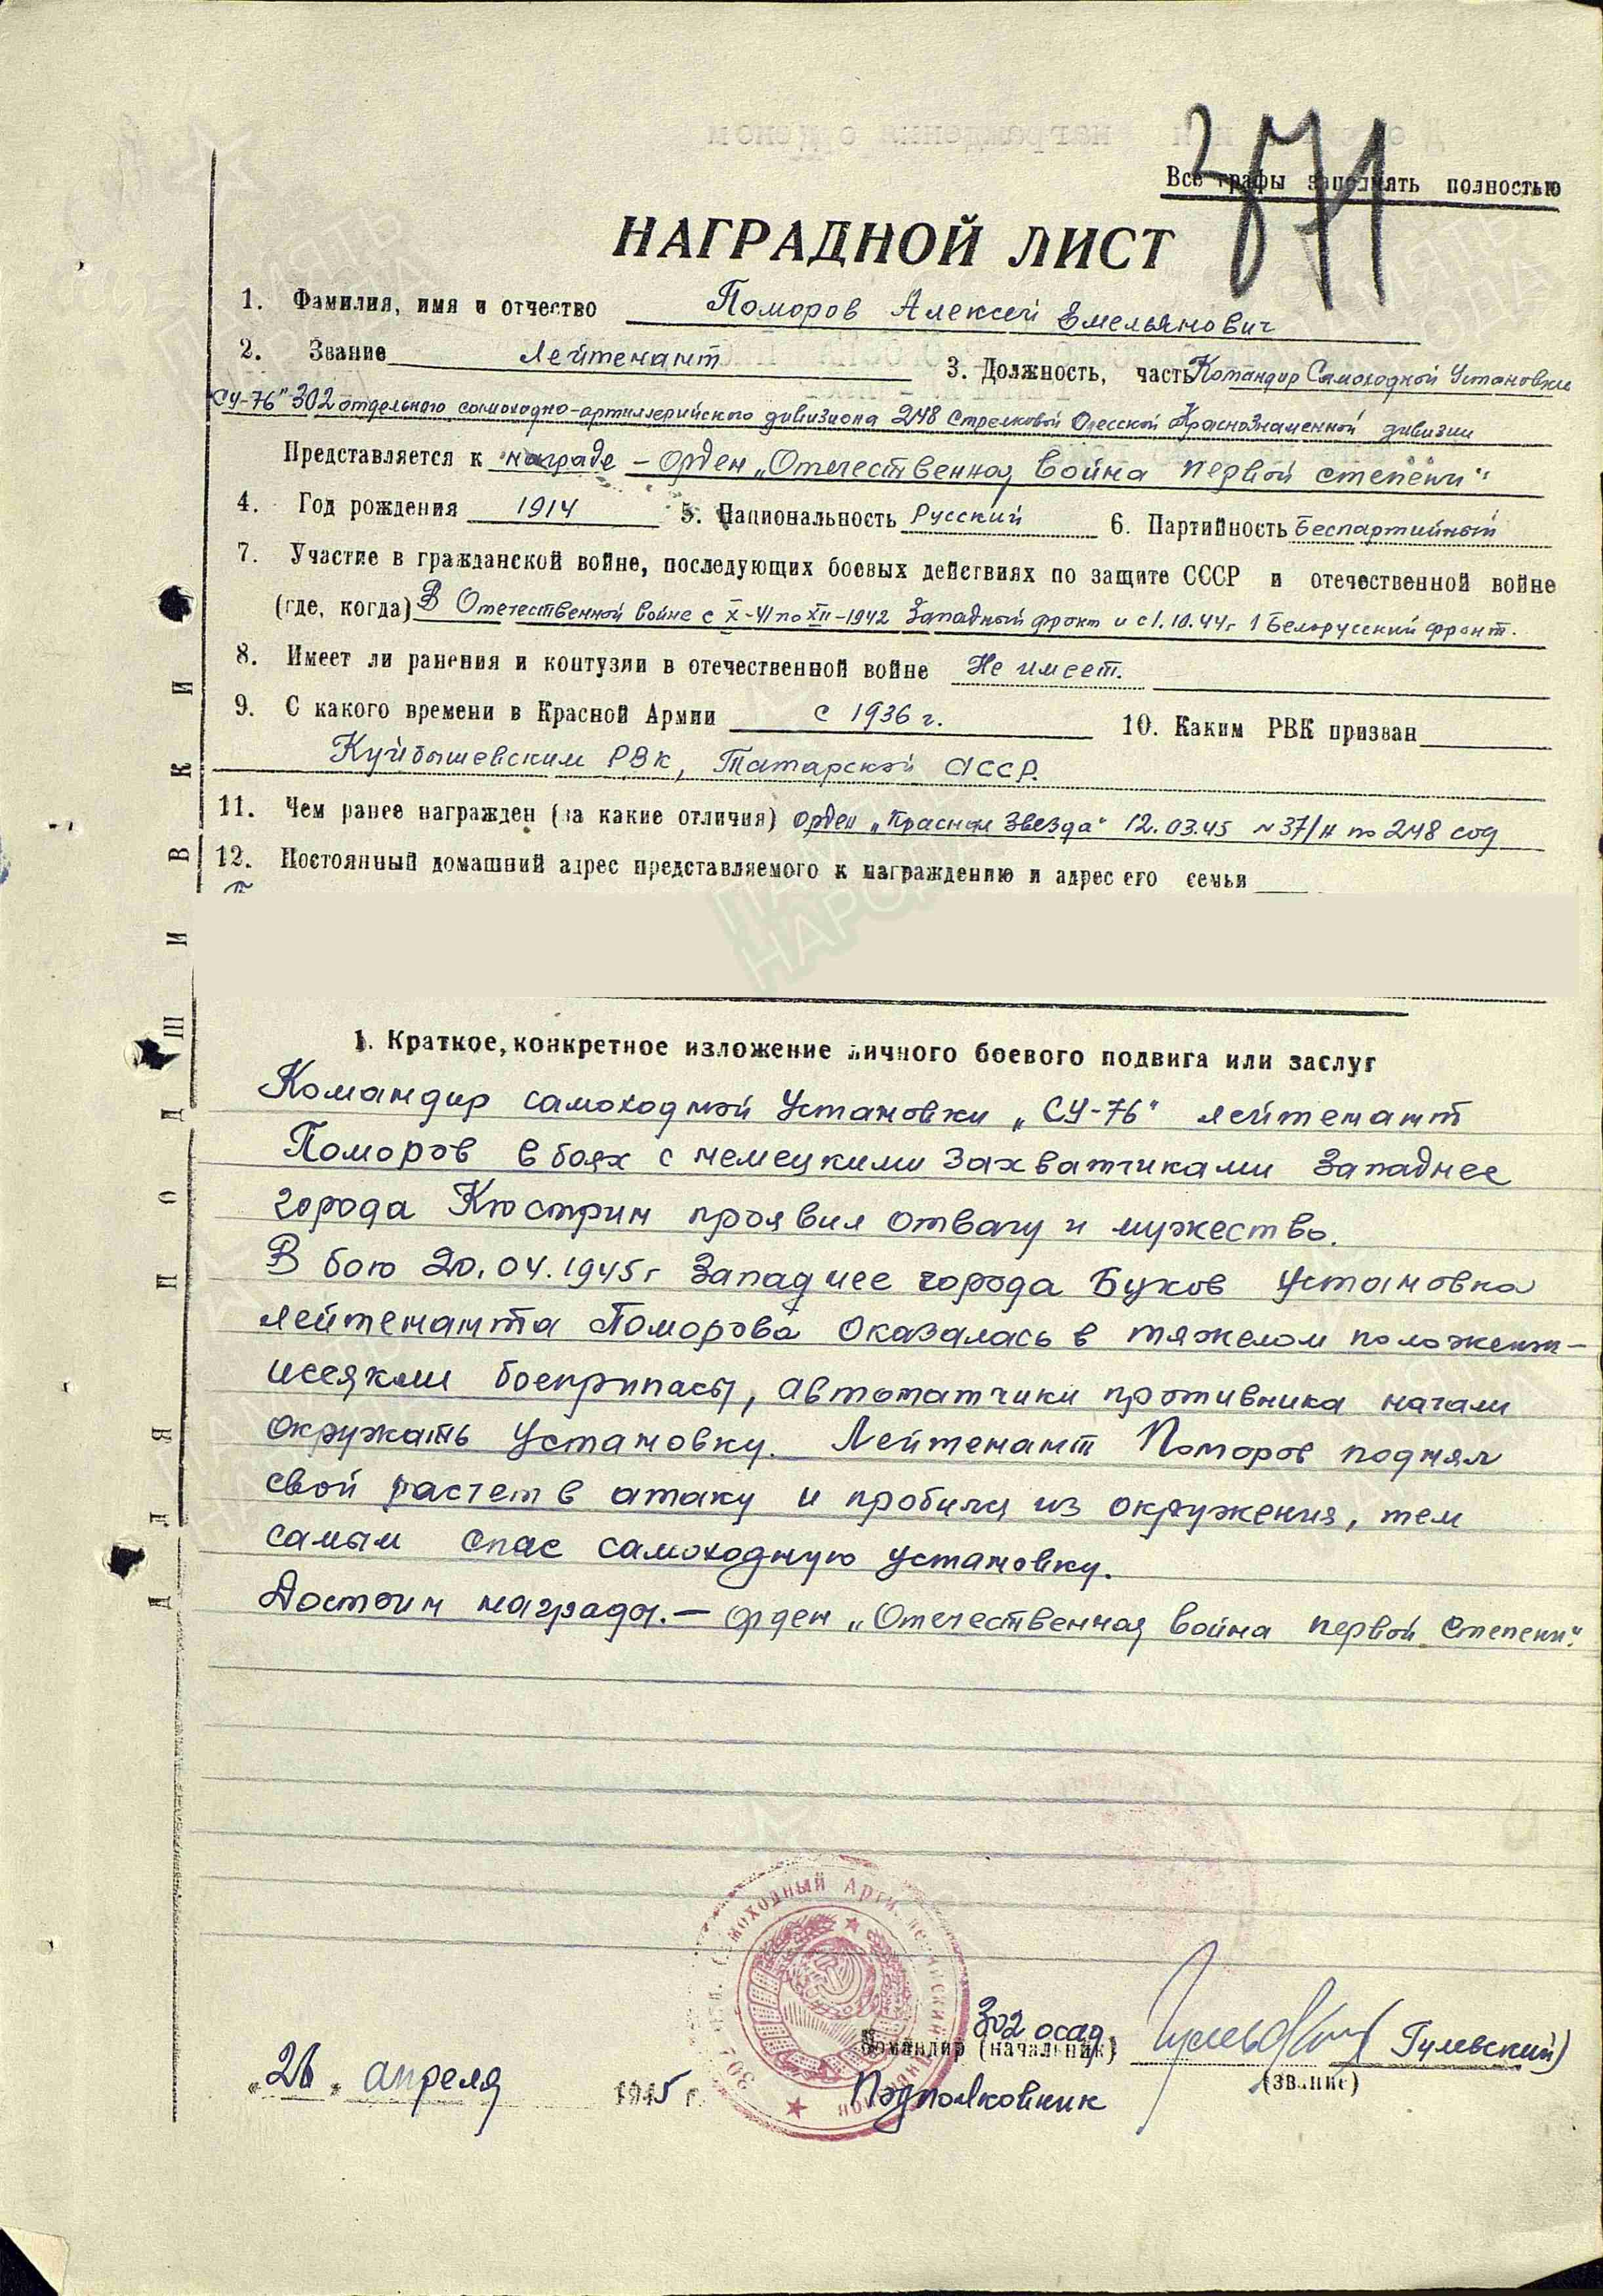 371
Все графы заполнять полностью
НАГРАДНОЙ ЛИСТ
1. Фамилия, имя и отчество Поморов Алексей Емельянович
2. Звание Лейтенант 3. Должность, часть Командир Самоходной Установки
СУ-76" 302 отдельного самоходно-артиллерийского дивизиона 248 Стрелковой Одесской Краснознаменной дивизии
Представляется к награде - орден „Отечественная война первой степени"
4. Год рождения 1914 5. Национальность Русский 6. Партийность Беспартийный
7. Участие в гражданской войне, последующих боевых действиях по защите СССР и отечественной войне
(где, когда) В Отечественной войне с X-41 по XII-1942 Западный фронт и с 1.10.44г 1 Белорусский фронт.
8. Имеет ли ранения и контузии в отечественной войне Не имеет.
9. С какого времени в Красной Армии с 1936 г. 10. Каким РВК призван
Куйбышевским РВК, Татарской АССР.
11. Чем ранее награжден (за какие отличия) орден „Красная Звезда" 12.03.45 №37/н по 248 сод
12. Постоянный домашний адрес представляемого к награждению и адрес его семьи
ДЛЯ ПОДШИВКИ
ПАМЯТЬ
НАРОДА
1. Краткое, конкретное изложение личного боевого подвига или заслуг
Командир самоходной Установки „СУ-76" лейтенант
Поморов в боях с немецкими захватчиками Западнее
города Кюстрин проявил отвагу и мужество.
В бою 20.04.1945г Западнее города Буков Установка
лейтенанта Поморова оказалась в тяжелом положении-
иссякли боеприпасы, автоматчики противника начали
окружать Установку. Лейтенант Поморов поднял
свой расчет в атаку и пробился из окружения, тем
самым спас самоходную установку.
Достоин награды. - орден „Отечественная война первой степени".
302 осад.
Командир (начальник) Гулевский)
(звание)
„ апреля 1945 г. Подполковник
302 Самоходный Артиллерийский Дивизион